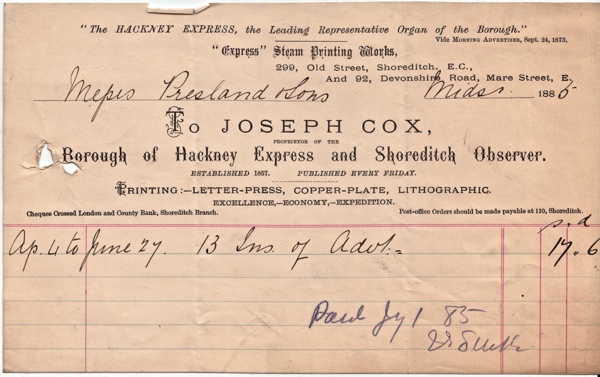 "The HACKNEY EXPRESS, the Leading Representative Organ of the Borough."
Vide MORNING ADVERTISER, Sept. 24, 1873.
"Express" Steam Printing Works,
299, Old Street, Shoreditch, E.C.,
And 92, Devonshire Road, Mare Street, E.
Messrs Presland & Sons Midsr. 1885
To JOSEPH COX,
PROPRIETOR OF THE
Borough of Hackney Express and Shoreditch Observer.
ESTABLISHED 1857. PUBLISHED EVERY FRIDAY.
PRINTING:—LETTER-PRESS, COPPER-PLATE, LITHOGRAPHIC.
EXCELLENCE,—ECONOMY,—EXPEDITION.
Cheques Crossed London and County Bank, Shoreditch Branch. Post-office Orders should be made payable at 110, Shoreditch.
s. d
Ap. 4 to June 27. 13 Ins. of Advt.= 17. 6
Paid Jy 1 85